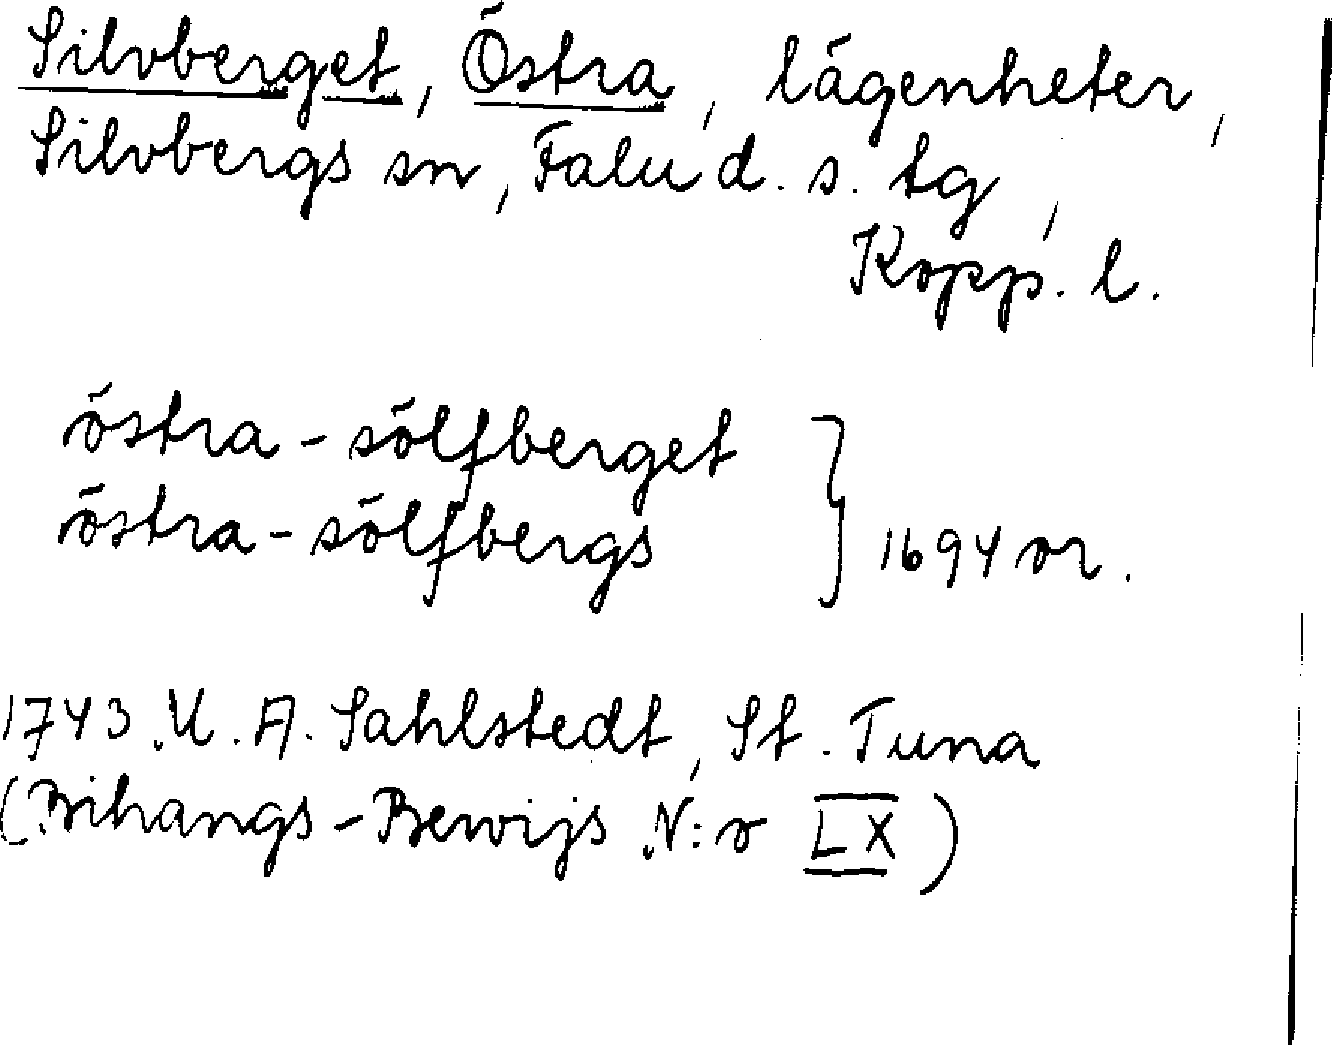 Silvberget, Östra, lägenheter,
Silvbergs sn, Falu d. s. tg,
Kopp. l.
östra-sölfberget
östra-sölfbergs } 1694 or.
1743. U. A. Sahlstedt, St. Tuna
(Bihangs-Bewijs N:o LX)